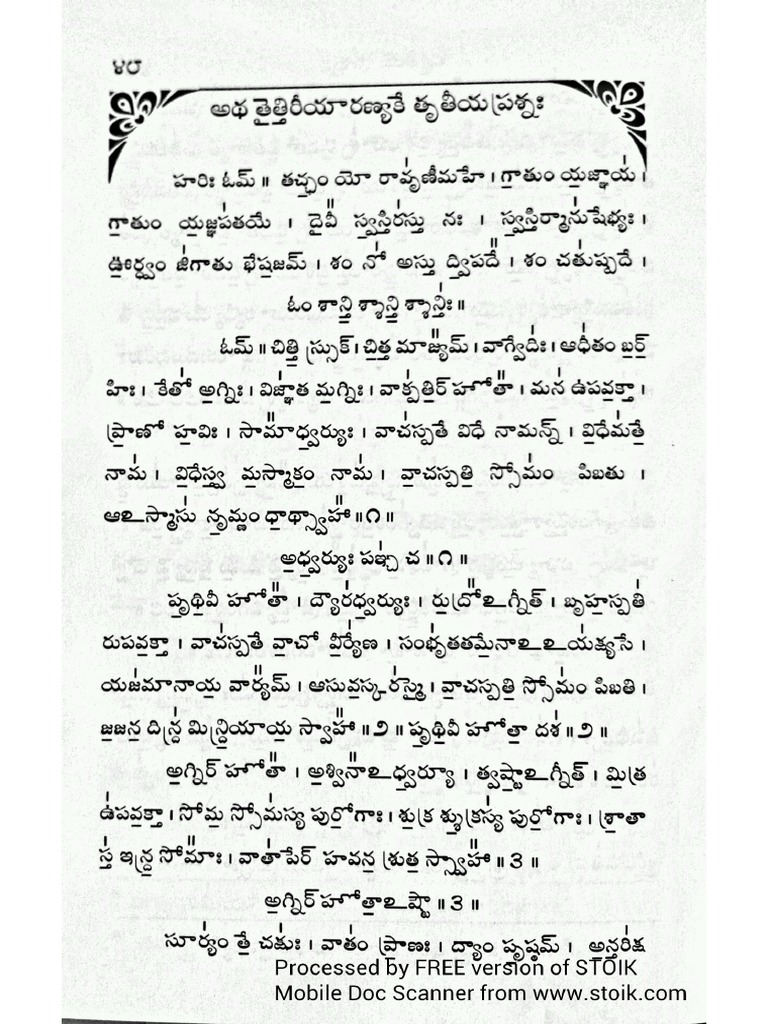 ౪౮
అథ తైత్తిరీయారణ్యకే తృతీయప్రశ్నః
హరిః ఓమ్॥ తచ్ఛం యో రావృ॑ణీమహే। గా॒తుం య॒జ్ఞాయ॑।
గా॒తుం య॒జ్ఞప॑తయే । దైవీ᳚ స్వ॒స్తిర॑స్తు నః । స్వ॒స్తిర్మాను॑షేభ్యః।
ఊ॒ర్ధ్వం జి॑గాతు భేష॒జమ్। శం నో॑ అస్తు ద్వి॒పదే᳚। శం చతు॑ష్పదే।
ఓం శాన్తి॒ శ్శాన్తి॒ శ్శాన్తిః॑॥
ఓమ్॥ చిత్తి॒ స్స్రుక్। చి॒త్త మాజ్య᳚మ్। వాగ్వేదిః॑। ఆధీ॑తం బ॒ర్॒
హిః। కేతో॑ అ॒గ్నిః। విజ్ఞా॑త మ॒గ్నిః। వాక్ప॑తి॒ర్ హోతా᳚। మన॑ ఉపవ॒క్తా।
ప్రా॒ణో హ॒విః। సామా᳚ధ్వ॒ర్యుః। వాచ॑స్పతే విధే నామన్న్। వి॒ధేమ॑తే॒
నామ॑। వి॒ధేస్త్వ మ॒స్మాకం॒ నామ॑। వా॒చస్పతి॒ స్సోమం॑ పిబతు ।
ఆఽస్మాసు॑ నృ॒మ్ణం ధా॒థ్స్వాహా᳚॥౧॥
అ॒ధ్వ॒ర్యుః పఞ్చ॑ చ॥౧॥
పృ॒థి॒వీ హోతా᳚। ద్యౌర॑ధ్వ॒ర్యుః। రు॒ద్రో᳚ఽగ్నీత్। బృహ॒స్పతి॑
రుపవ॒క్తా। వాచ॑స్పతే వా॒చో వీ॒ర్యే॑ణ। సంభృ॑తతమే॒నాఽఽయ॑క్ష్యసే।
యజ॑మానాయ॒ వార్య᳚మ్। ఆసువ॒స్కర॑స్మై। వా॒చస్పతి॒ స్సోమం॑ పిబతి।
జ॒జన॒ దిన్ద్ర॑ మిన్ద్రి॒యాయ॒ స్వాహా᳚॥౨॥ పృ॒థి॒వీ హోతా॒ దశ॑॥౨॥
అ॒గ్నిర్ హోతా᳚। అ॒శ్వినా᳚ఽధ్వ॒ర్యూ। త్వష్టా॒ఽగ్నీత్। మి॒త్ర
ఉ॑పవ॒క్తా। సోమ॒ స్సోమ॑స్య పురో॒గాః। శు॒క్ర శ్శు॒క్రస్య॑ పురో॒గాః। శ్రా॒తా
స్త॑ ఇన్ద్ర॒ సోమాః᳚। వాతా॑పేర్ హవన॒ శ్రుత॒ స్స్వాహా᳚॥౩॥
అ॒గ్నిర్ హోతా॒ఽష్టౌ॥౩॥
సూర్యం॑ తే॒ చక్షుః॑। వాతం॑ ప్రా॒ణః। ద్యాం పృ॒ష్ఠమ్। అ॒న్తరి॑క్ష
Processed by FREE version of STOIK
Mobile Doc Scanner from www.stoik.com